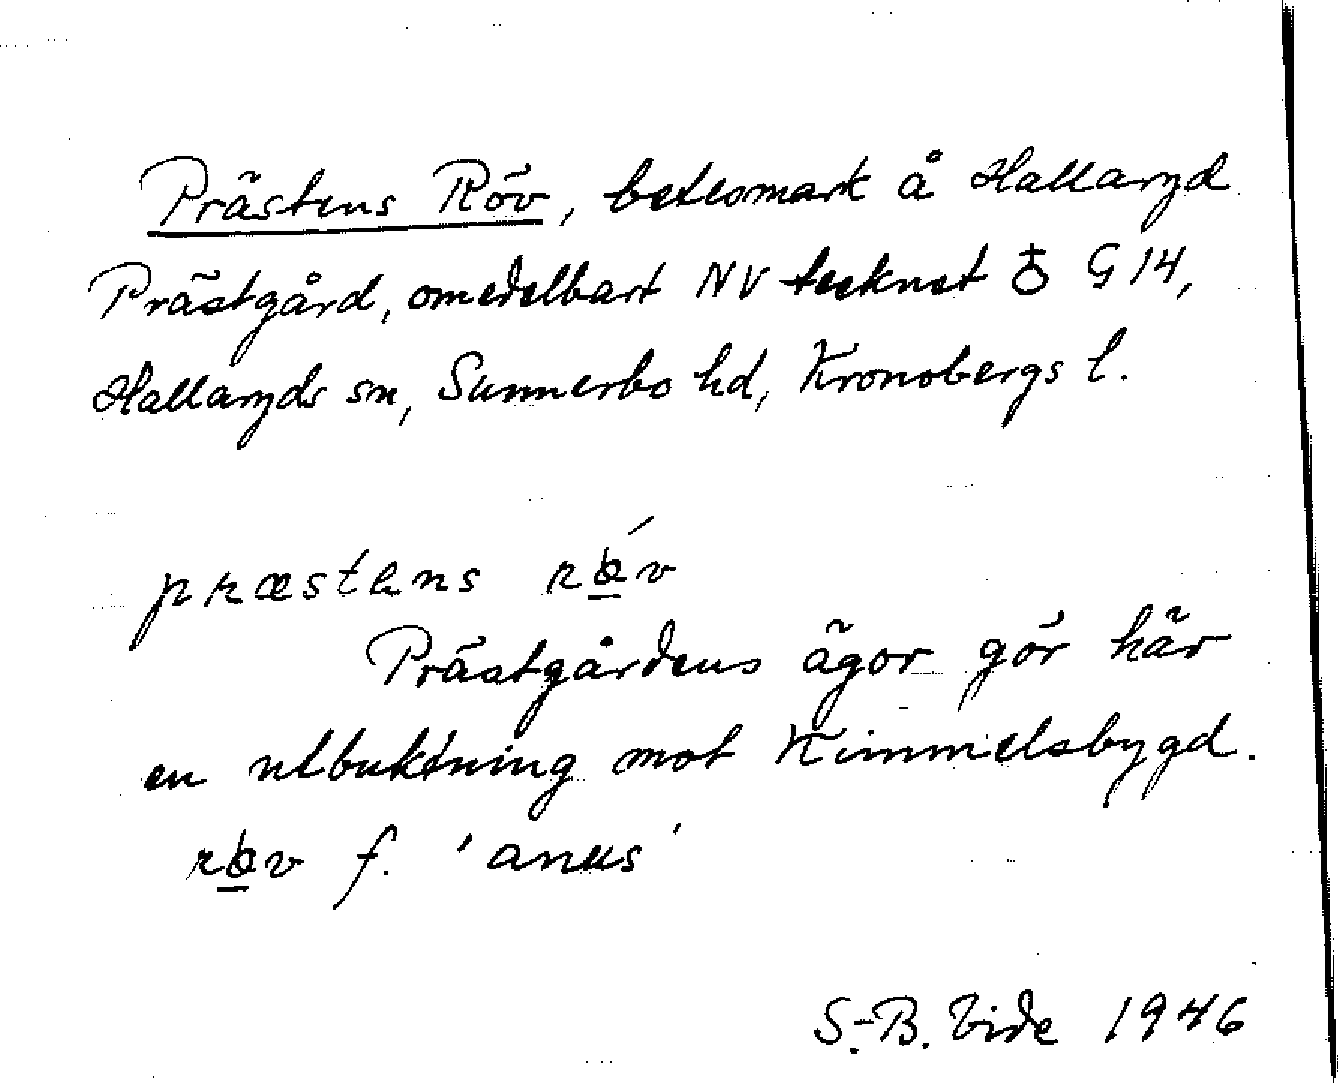 Prästens Röv, betesmark å Hallaryd
Prästgård, omedelbart NV tecknet ♁ G 14,
Hallaryds sn, Sunnerbo hd, Kronobergs l.
præstens röv
Prästgårdens ägor gör här
en utbuktning mot Kimmelsbygd.
röv f. 'anus'
S.-B. Vide 1946